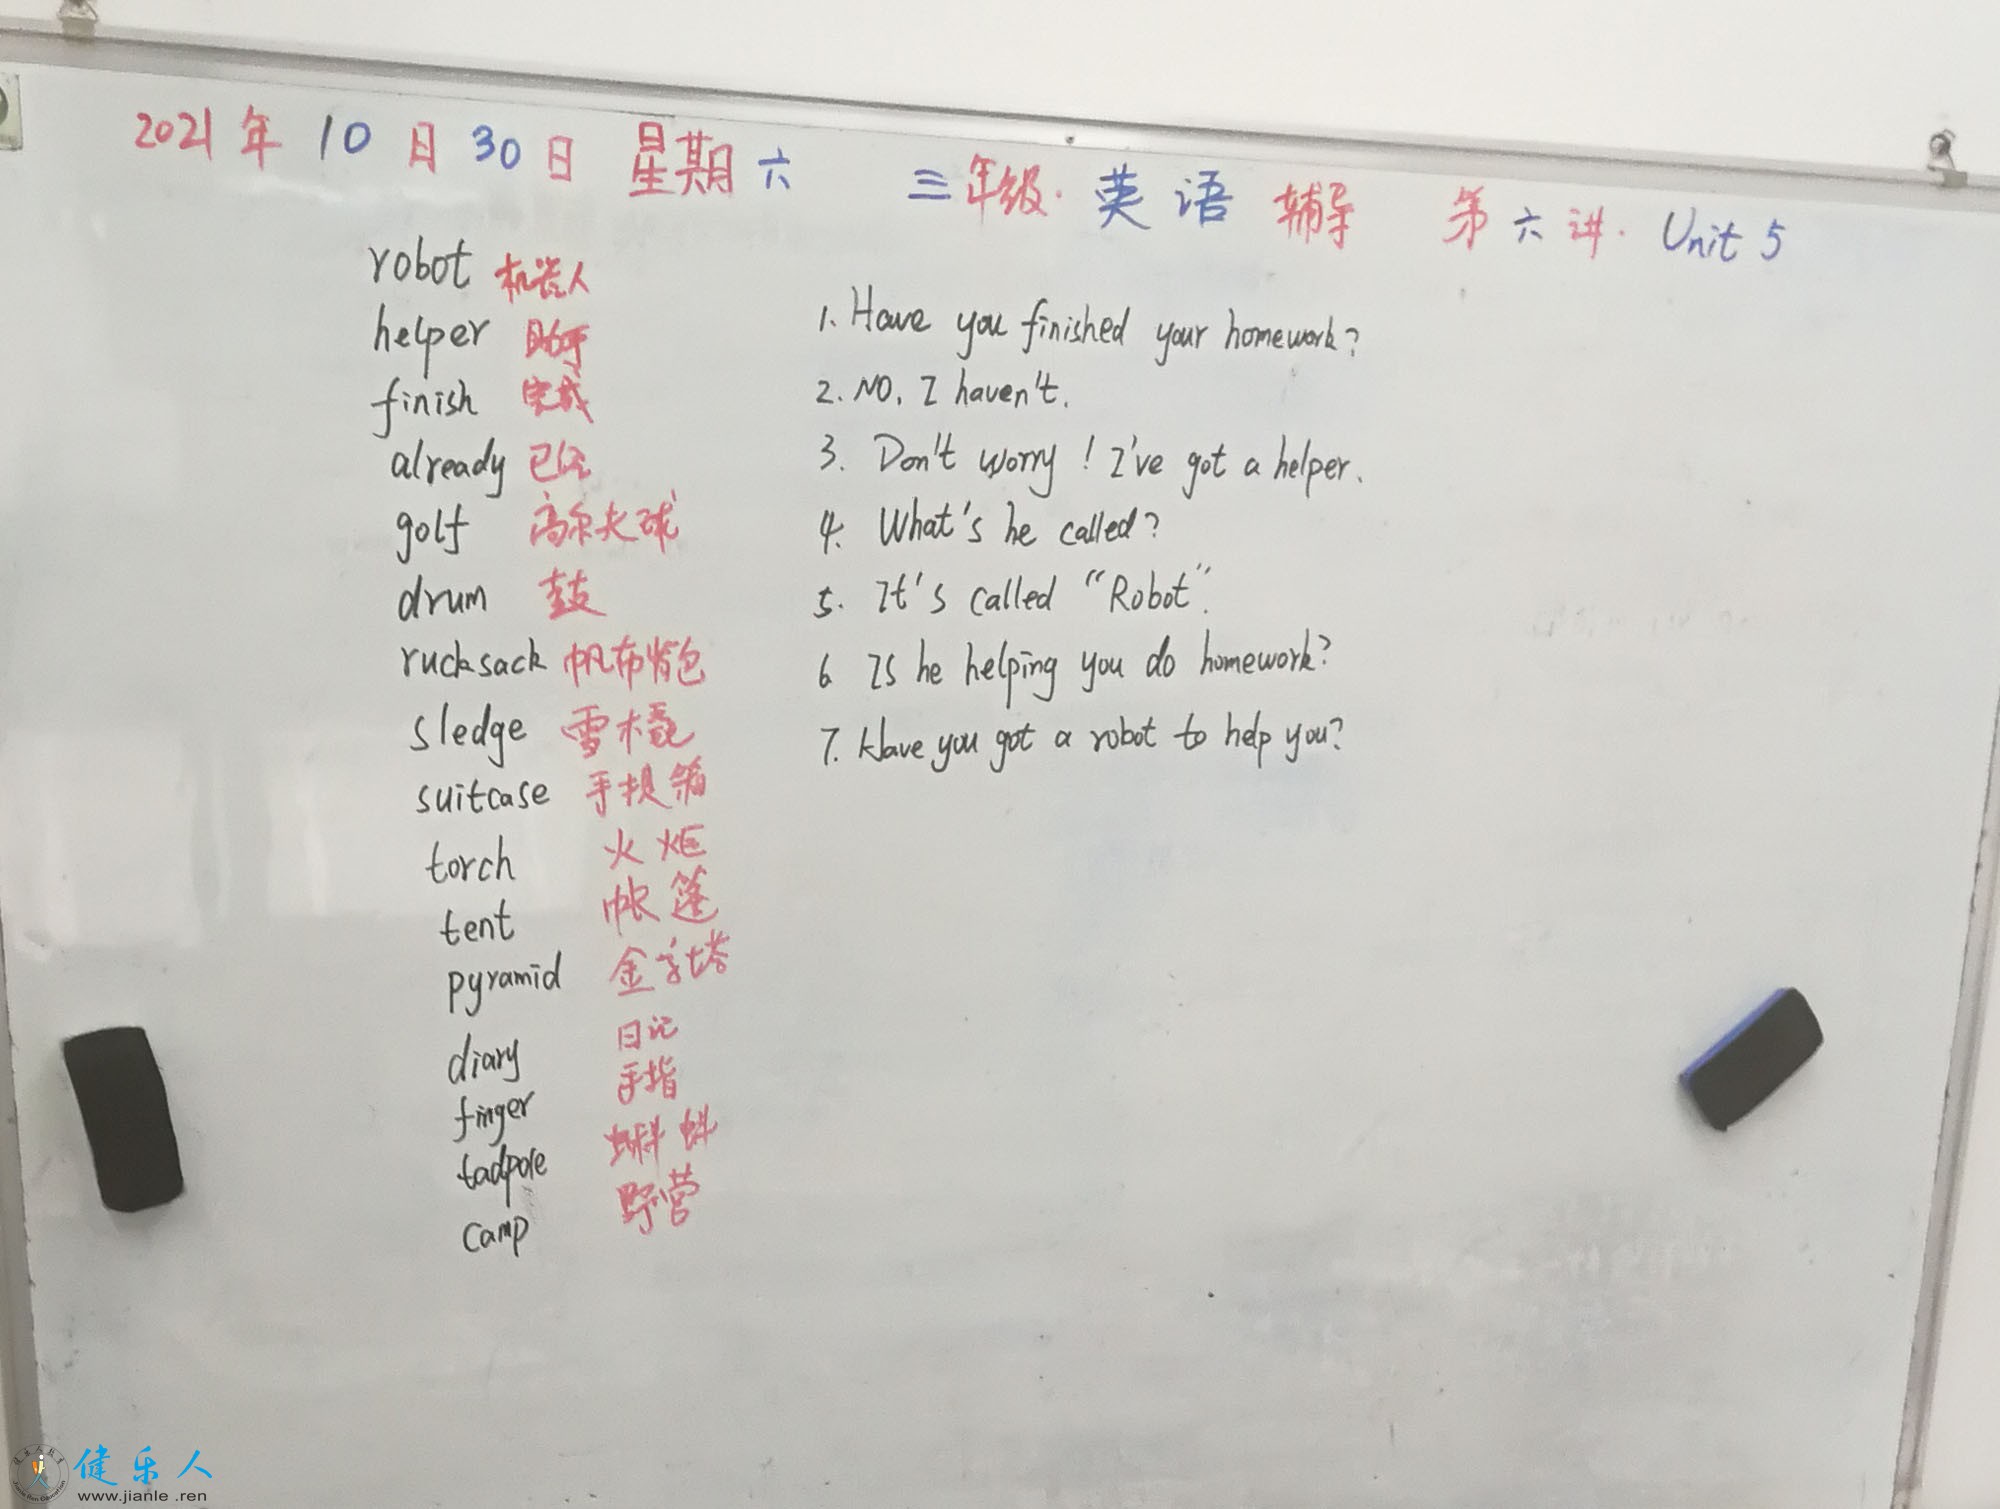 2021年10月30日 星期六 三年级·英语辅导 第六讲·Unit 5
robot 机器人
helper 助手
finish 完成
already 已经
golf 高尔夫球
drum 鼓
rucksack 帆布背包
sledge 雪橇
suitcase 手提箱
torch 火炬
tent 帐篷
pyramid 金字塔
diary 日记
finger 手指
tadpole 蝌蚪
camp 野营
1. Have you finished your homework?
2. NO, I haven't.
3. Don't worry! I've got a helper.
4. What's he called?
5. It's called "Robot".
6 Is he helping you do homework?
7. Have you got a robot to help you?
健乐人
www.jianle.ren